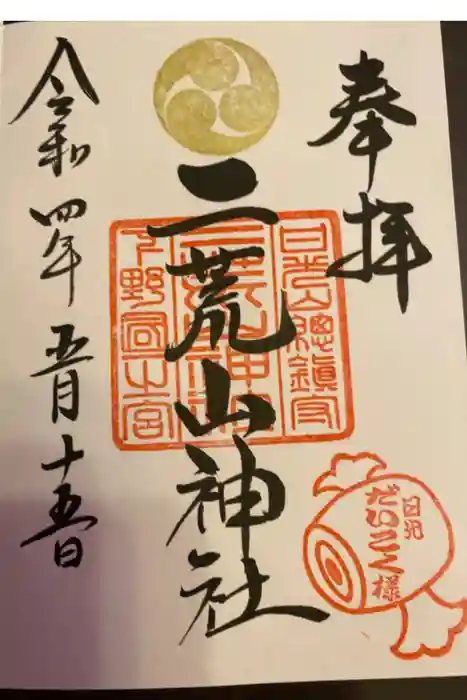 奉拝
日光山總鎮守
二荒山神社
下野國一之宮
日光
だいこく様
令和四年五月十五日